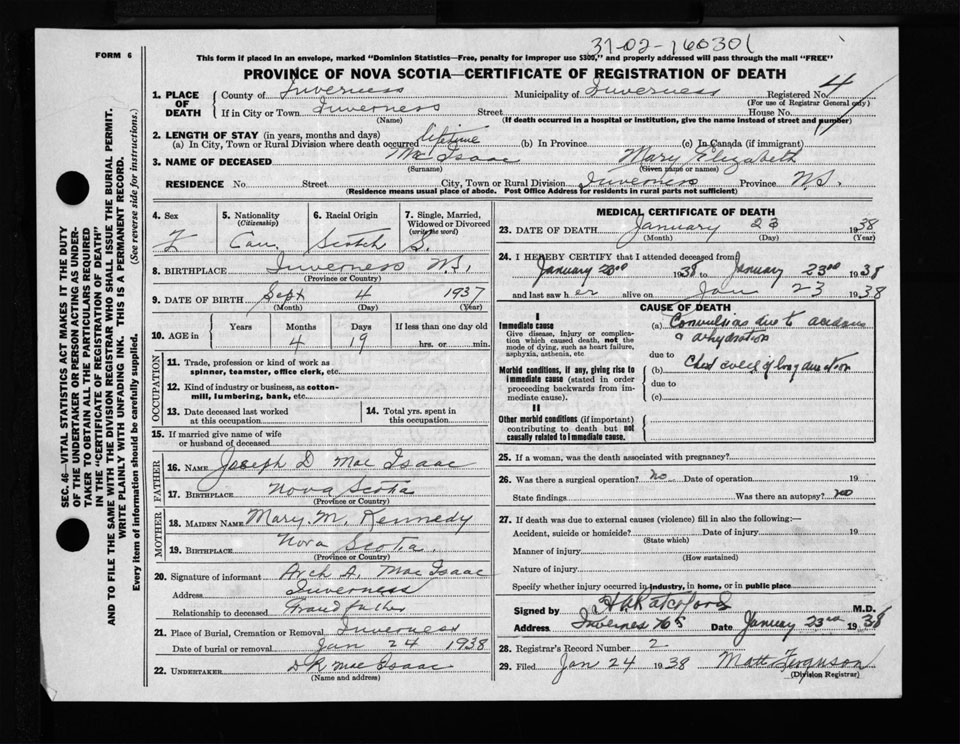 FORM 6
31-02-160301
This form if placed in an envelope, marked "Dominion Statistics—Free, penalty for improper use $300," and properly addressed will pass through the mail "FREE"
PROVINCE OF NOVA SCOTIA—CERTIFICATE OF REGISTRATION OF DEATH
1. PLACE OF DEATH
County of Inverness Municipality of Inverness Registered No. 4
(For use of Registrar General only)
If in City or Town Inverness Street House No.
(Name) (If death occurred in a hospital or institution, give the name instead of street and number)
2. LENGTH OF STAY (in years, months and days)
(a) In City, Town or Rural Division where death occurred lifetime (b) In Province (c) In Canada (if immigrant)
3. NAME OF DECEASED Mac Isaac Mary Elizabeth
(Surname) (Given name or names)
RESIDENCE No. Street City, Town or Rural Division Inverness Province N.S.
(Residence means usual place of abode. Post Office Address for residents in rural parts not sufficient)
4. Sex 5. Nationality (Citizenship) 6. Racial Origin 7. Single, Married, Widowed or Divorced (write the word)
F Can Scotch S.
8. BIRTHPLACE Inverness N.S.
(Province or Country)
9. DATE OF BIRTH Sept 4 1937
(Month) (Day) (Year)
10. AGE in Years Months Days If less than one day old
4 19 hrs. or min.
OCCUPATION
11. Trade, profession or kind of work as spinner, teamster, office clerk, etc.
12. Kind of industry or business, as cotton-mill, lumbering, bank, etc.
13. Date deceased last worked at this occupation
14. Total yrs. spent in this occupation
15. If married give name of wife or husband of deceased
FATHER
16. NAME Joseph D Mac Isaac
17. BIRTHPLACE Nova Scotia
(Province or Country)
MOTHER
18. MAIDEN NAME Mary M. Kennedy
19. BIRTHPLACE Nova Scotia.
(Province or Country)
20. Signature of informant Arch A. Mac Isaac
Address Inverness
Relationship to deceased Grandfather
21. Place of Burial, Cremation or Removal Inverness
Date of burial or removal Jan 24 1938
22. UNDERTAKER D R Mac Isaac
(Name and address)
MEDICAL CERTIFICATE OF DEATH
23. DATE OF DEATH January 23 1938
(Month) (Day) (Year)
24. I HEREBY CERTIFY that I attended deceased from
January 23rd 1938 to January 23rd 1938
and last saw her alive on Jan 23 1938
CAUSE OF DEATH
I
Immediate cause
Give disease, injury or complication which caused death, not the mode of dying, such as heart failure, asphyxia, asthenia, etc.
(a) Convulsions due to
due to
Morbid conditions, if any, giving rise to immediate cause (stated in order proceeding backwards from immediate cause).
(b) of long duration
due to
(c)
II
Other morbid conditions (if important) contributing to death but not causally related to immediate cause.
25. If a woman, was the death associated with pregnancy?
26. Was there a surgical operation? no Date of operation 19
State findings Was there an autopsy? no
27. If death was due to external causes (violence) fill in also the following:—
Accident, suicide or homicide? Date of injury 19
(State which)
Manner of injury
(How sustained)
Nature of injury
Specify whether injury occurred in industry, in home, or in public place
Signed by M.D.
Address Inverness NS Date January 23rd 1938
28. Registrar's Record Number 2
29. Filed Jan 24 1938 Matt Ferguson
(Division Registrar)
SEC. 46—VITAL STATISTICS ACT MAKES IT THE DUTY
OF THE UNDERTAKER OR PERSON ACTING AS UNDER-
TAKER TO OBTAIN ALL THE PARTICULARS REQUIRED
IN THE "CERTIFICATE OF REGISTRATION OF DEATH"
AND TO FILE THE SAME WITH THE DIVISION REGISTRAR WHO SHALL ISSUE THE BURIAL PERMIT.
WRITE PLAINLY WITH UNFADING INK. THIS IS A PERMANENT RECORD.
Every item of information should be carefully supplied. (See reverse side for instructions.)